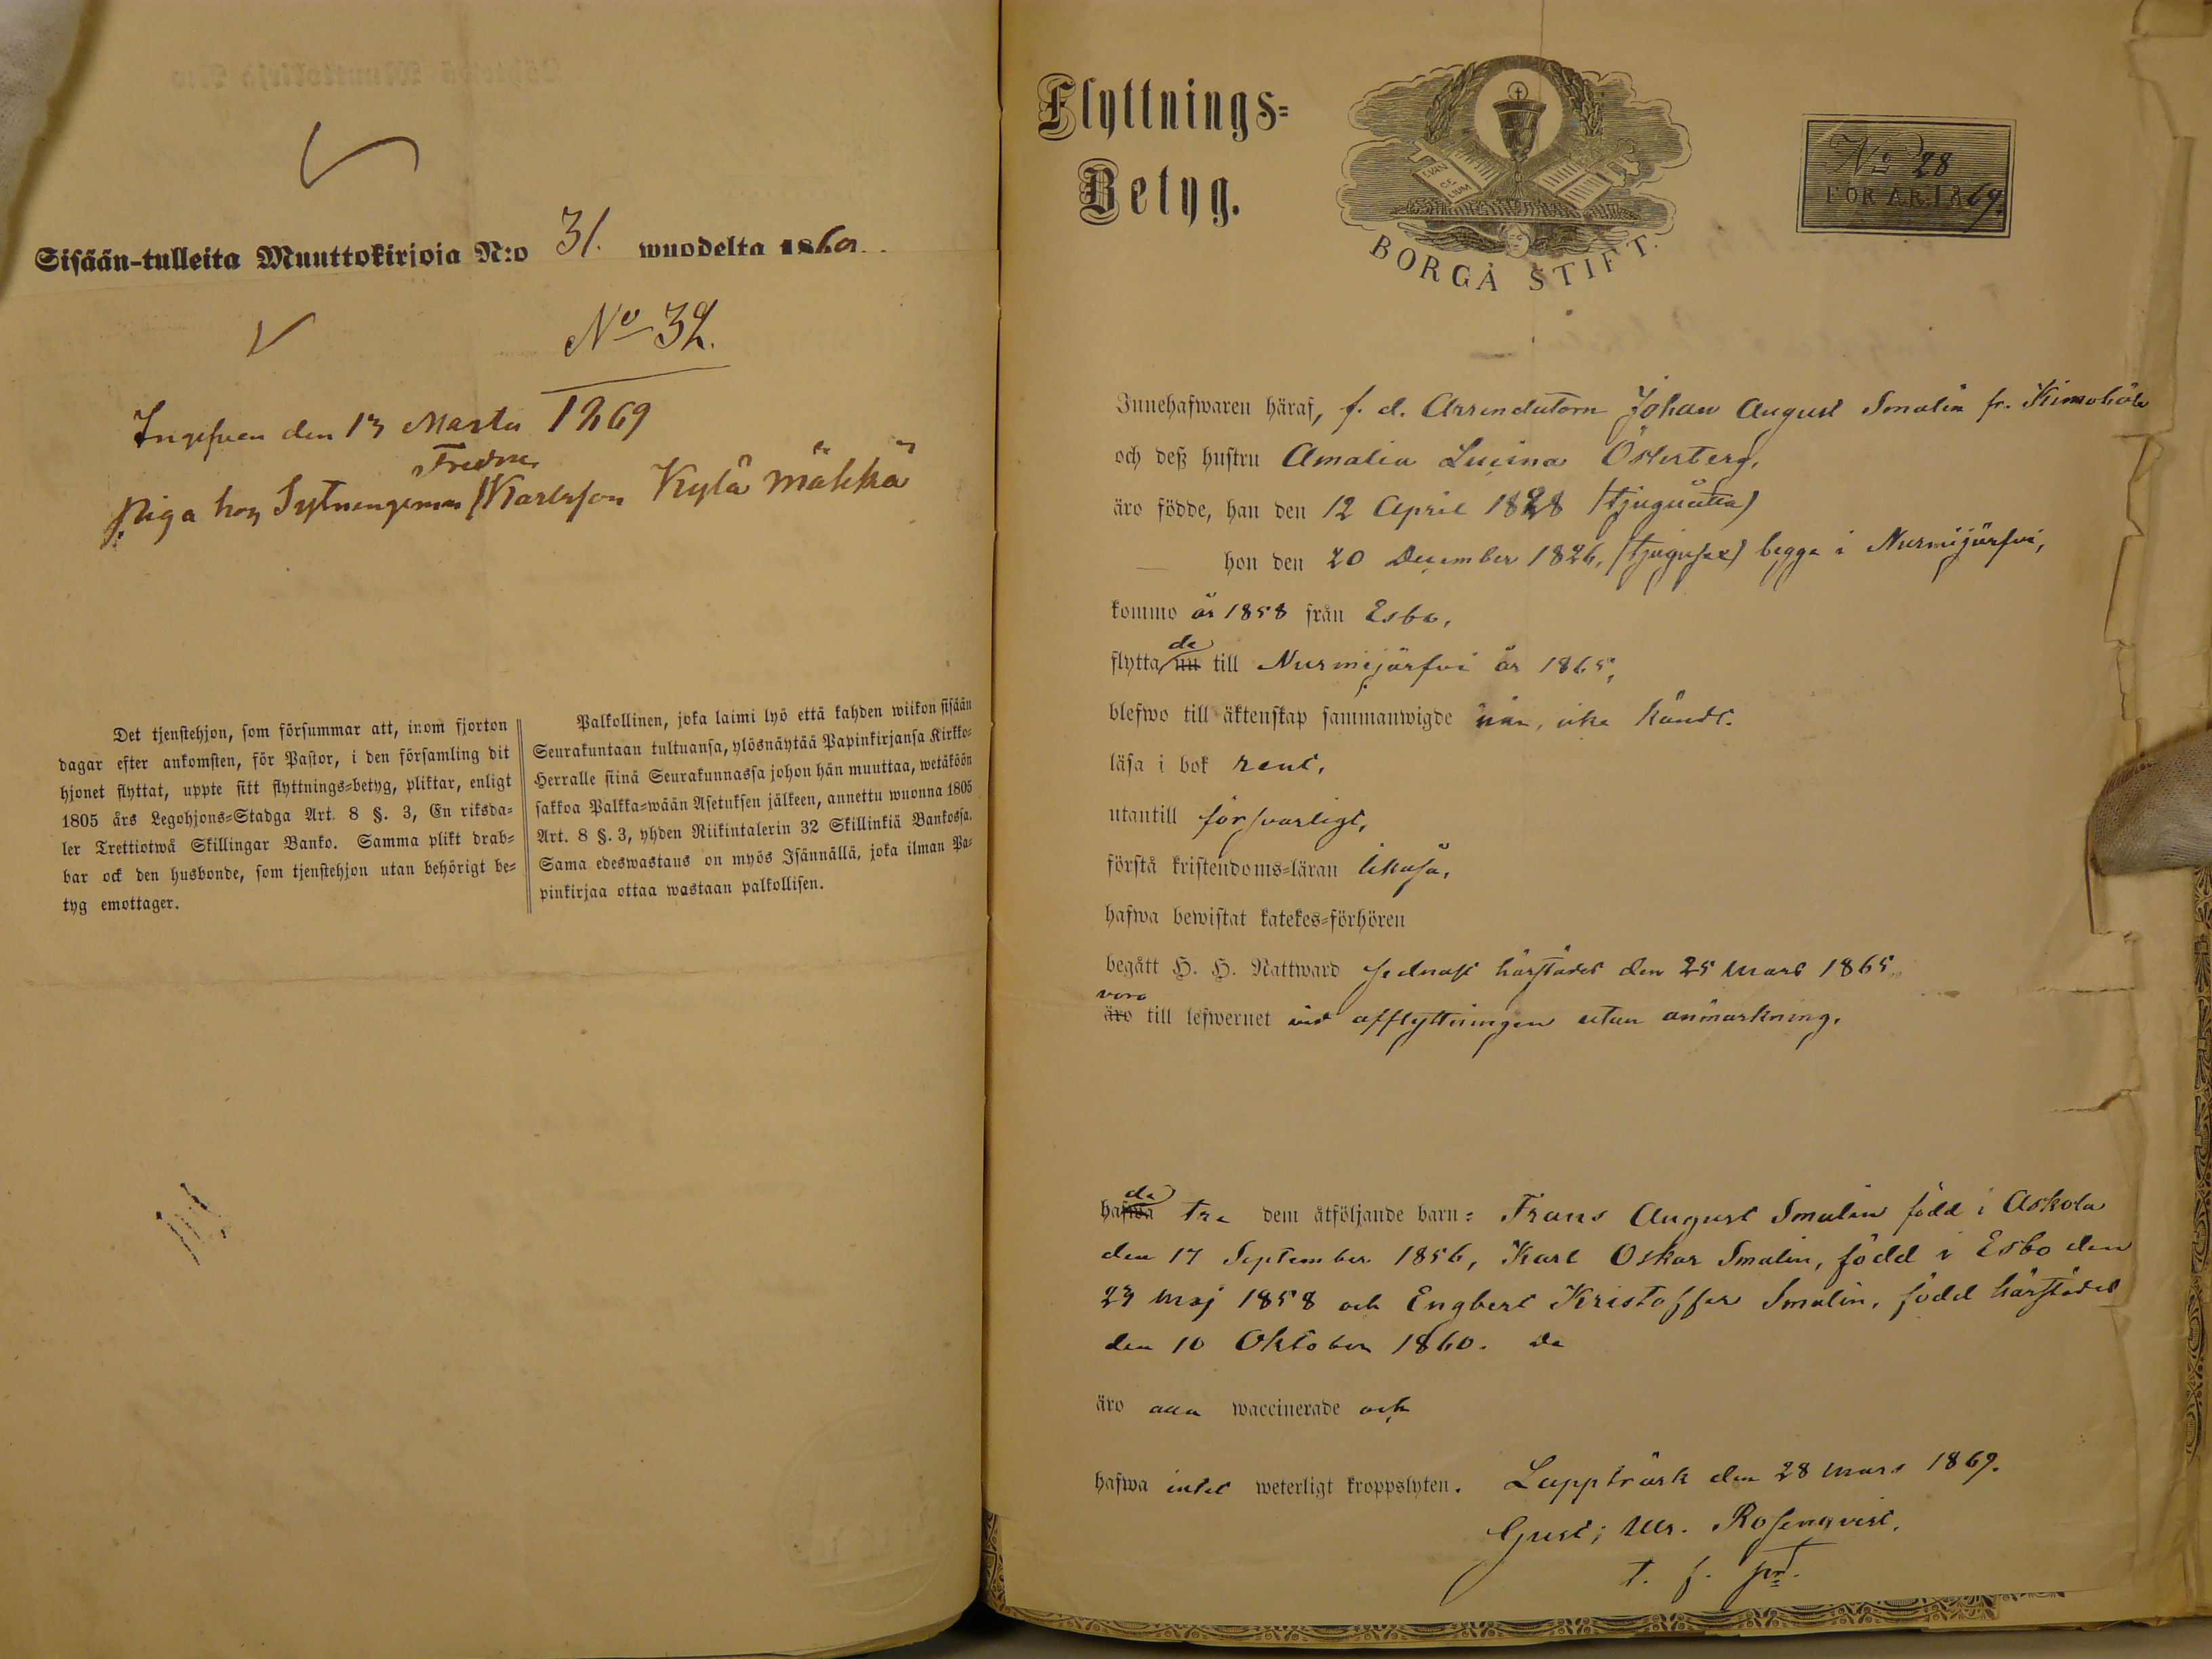 Sisään-tulleita Muuttokirjoja N:o 31. wuodelta 1869.
No 32.
den 13 Martii 1869
Fredr.
Piga hos Karlsson Kylä mäkkä
Det tjenstehjon, som försummar att, inom fjorton
dagar efter ankomsten, för Pastor, i den församling dit
hjonet flyttat, uppte sitt flyttnings=betyg, pliktar, enligt
1805 års Legohjons=Stadga Art. 8 §. 3, En riksda=
ler Trettiotwå Skillingar Banko. Samma plikt drab=
bar ock den husbonde, som tjenstehjon utan behörigt be=
tyg emottager.
Palkollinen, joka laimi lyö että kahden wiikon sisään
Seurakuntaan tultuansa, ylösnäytää Papinkirjansa Kirkko=
Herralle siinä Seurakunnassa johon hän muuttaa, wetäköön
sakkoa Palkka=wään Asetuksen jälkeen, annettu wuonna 1805
Art. 8 §. 3, yhden Riikintalerin 32 Skillinkiä Bankossa.
Sama edeswastaus on myös Isännällä, joka ilman Pa=
pinkirjaa ottaa wastaan palkollisen.
Flyttnings=
Betyg.
EVAN
GE
LIUM
BORGÅ STIFT.
No 28
FÖR ÅR 1869.
Innehafwaren häraf, f. d. Arrendatorn Johan August Smalin fr. Kimoböle
och deß hustru Amalia Lucina Österberg,
äro födde, han den 12 April 1828 (tjuguåtta)
hon den 20 December 1826, (tjugusex) begge i Nurmijärfvi,
kommo år 1858 från Esbo,
da
flytta nu till Nurmijärfvi år 1865,
blefwo till äktenskap sammanwigde när, icke kändt.
läsa i bok rent,
utantill försvarligt,
förstå kristendoms=läran likaså,
hafwa bewistat katekes=förhören
begått H. H. Nattward sednast härstädes den 25 Mars 1865,
voro
äro till lefwernet vid afflyttningen utan anmärkning.
de
hafwa tre dem åtföljande barn: Frans August Smalin född i Askola
den 17 September 1856, Karl Oskar Smalin, född i Esbo den
23 Maj 1858 och Engbert Kristoffer Smalin, född härstädes
den 10 Oktober 1860. De
äro alla waccinerade och
hafwa intet weterligt kroppslyten. Lappträsk den 28 Mars 1869.
Gust; Ulr. Rosenqvist,
t. f. pr.